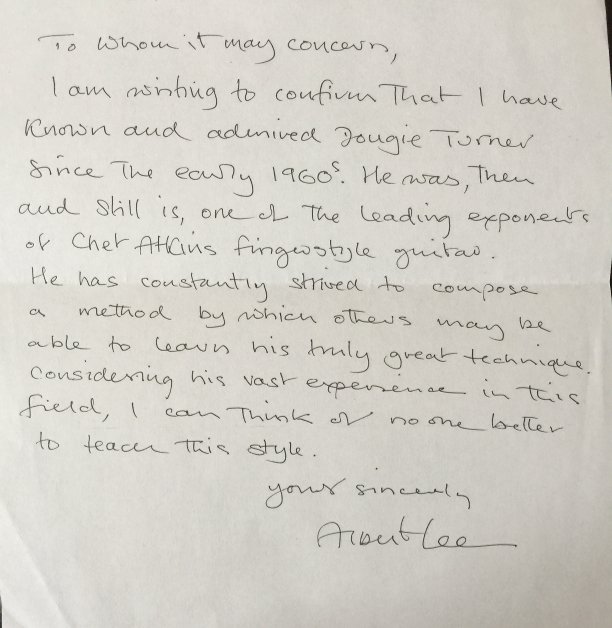 To Whom it may concern,
I am writing to confirm That I have
Known and admired Dougie Turner
since The early 1960s. He was, Then
and Still is, one of The leading exponents
of Chet Atkins fingerstyle guitar.
He has constantly strived to compose
a method by which others may be
able to learn his truly great technique.
Considering his vast experience in this
field, I can Think of no one better
to teach This style.
yours sincerely
Albert Lee